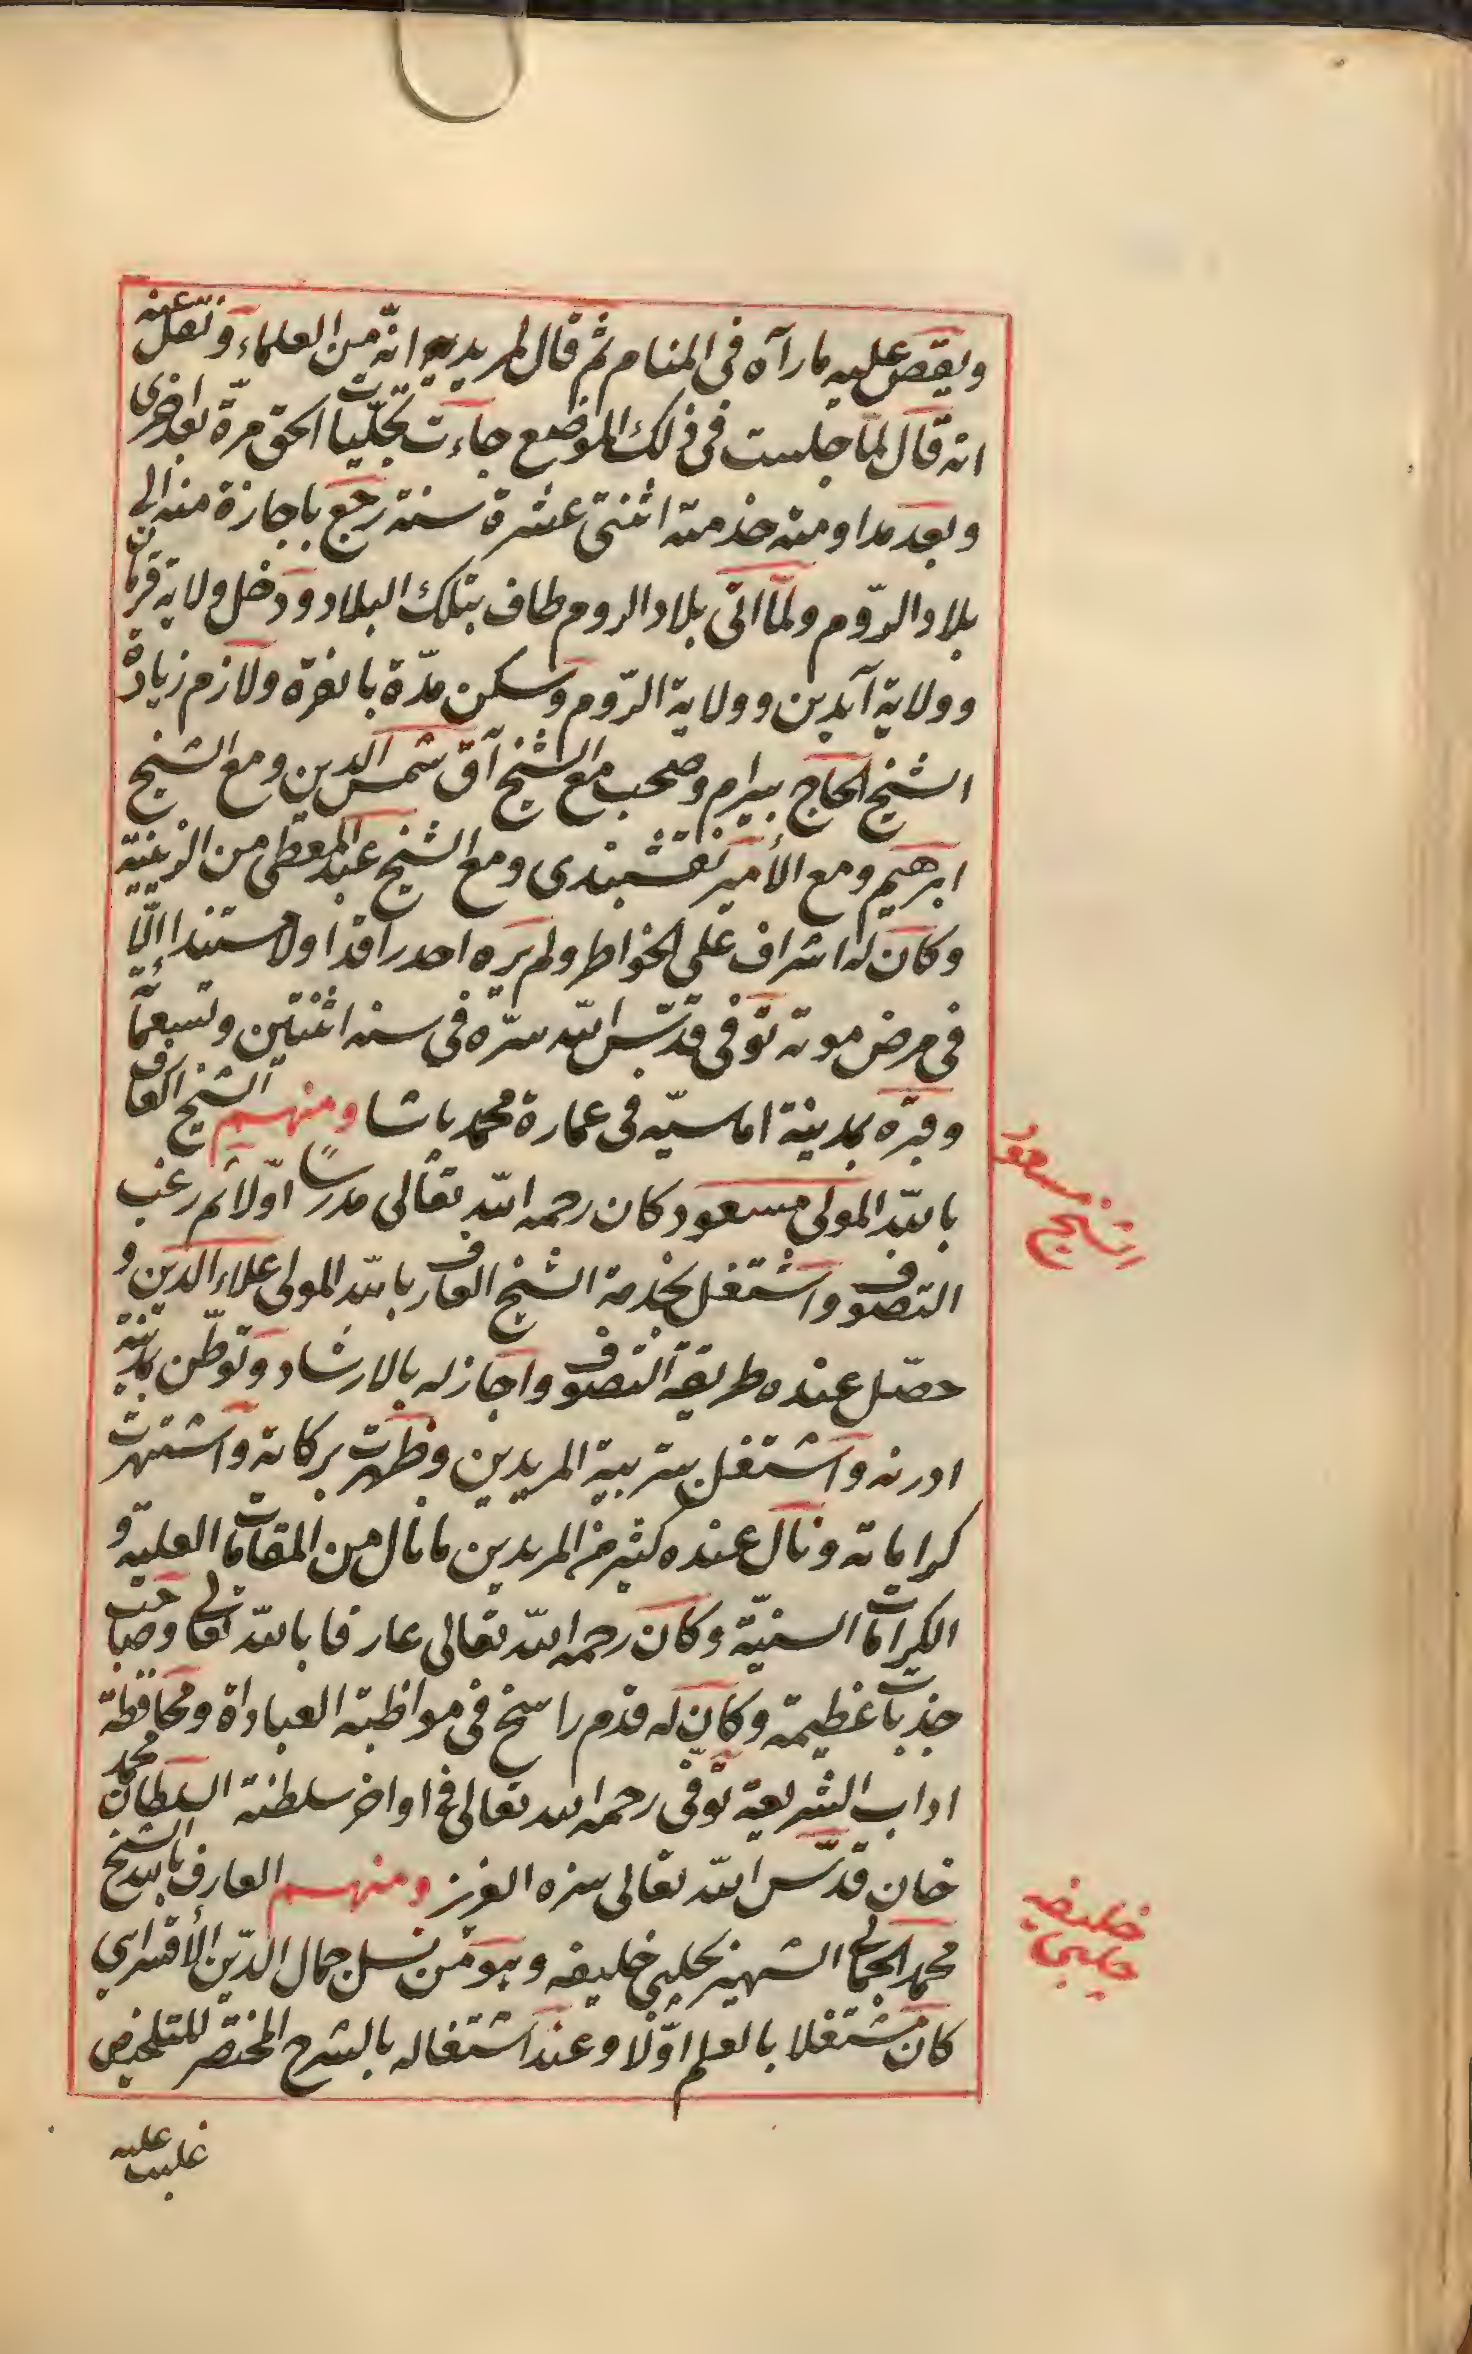 ويقص عليه ما رآه فى المنام ثم قال لمريديه انه من العلماء ونقل عنه
انه قال لما جلست فى ذلك الموضع جاءت تجليات الحق مرة بعد اخرى
وبعد مداومته خدمته اثنتى عشرة سنة رجع باجازة منه الى
بلاد الروم ولما اتى بلاد الروم طاف بتلك البلاد ودخل ولاية قرمان
وولاية آيدين وولاية الروم وسكن مدة بانقره ولازم زيادة
الشيخ الحاج بيرام وصحب مع الشيخ آق شمس الدين ومع الشيخ
ابرهيم ومع الأمير نقشبندى ومع الشيخ عبد المعطى من الزينية
وكان له اشراف على الخواطر ولم يره احد راقدا ولا مستندا الا
فى مرض موته توفى قدس الله سره فى سنه اثنتين وتسعمائة
وقبره بمدينة اماسيه فى عمارة محمد باشا ومنهم الشيخ العارف
بالله المولى مسعود كان رحمه الله تعالى مدرسا اولا ثم رغب
التصوف واشتغل بخدمة الشيخ العارف بالله المولى علاء الدين و
حصل عنده طريقة التصوف واجاز له بالارشاد وتوطن بمدينة
ادرنه واشتغل بتربية المريدين وظهرت بركاته واشتهرت
كراماته ونال عنده كثير من المريدين ما نال من المقامات العلية و
الكرامات السنية وكان رحمه الله تعالى عارفا بالله تعالى وصاحب
جذبات عظيمة وكان له قدم راسخ فى مواظبة العباداة ومحافظة
اداب الشريعة توفى رحمه الله تعالى فى اواخر سلطنة السلطان محمد
خان قدس الله تعالى سره العزيز ومنهم العارف بالله الشيخ
محمد الجمالى الشهير بجلبى خليفه وهو من نسل جمال الدين الأقسرايى
كان مشتغلا بالعلم اولا وعند اشتغاله بالشرح المختصر للتلخيص
غلب عليه
الشيخ مسعود
خليفه جلبى